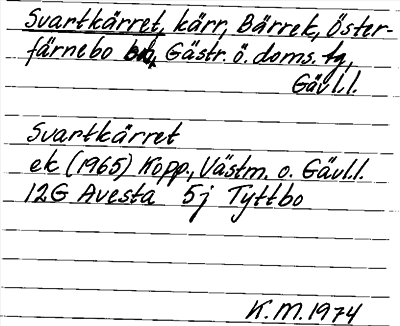 Svartkärret, kärr, Bärrek, Öster-
färnebo Gästr. ö. doms. tg,
Gävl.l.
Svartkärret
ek (1965) Kopp., Västm. o. Gävl.l.
12G Avesta 5j Tyttbo
K.M. 1974